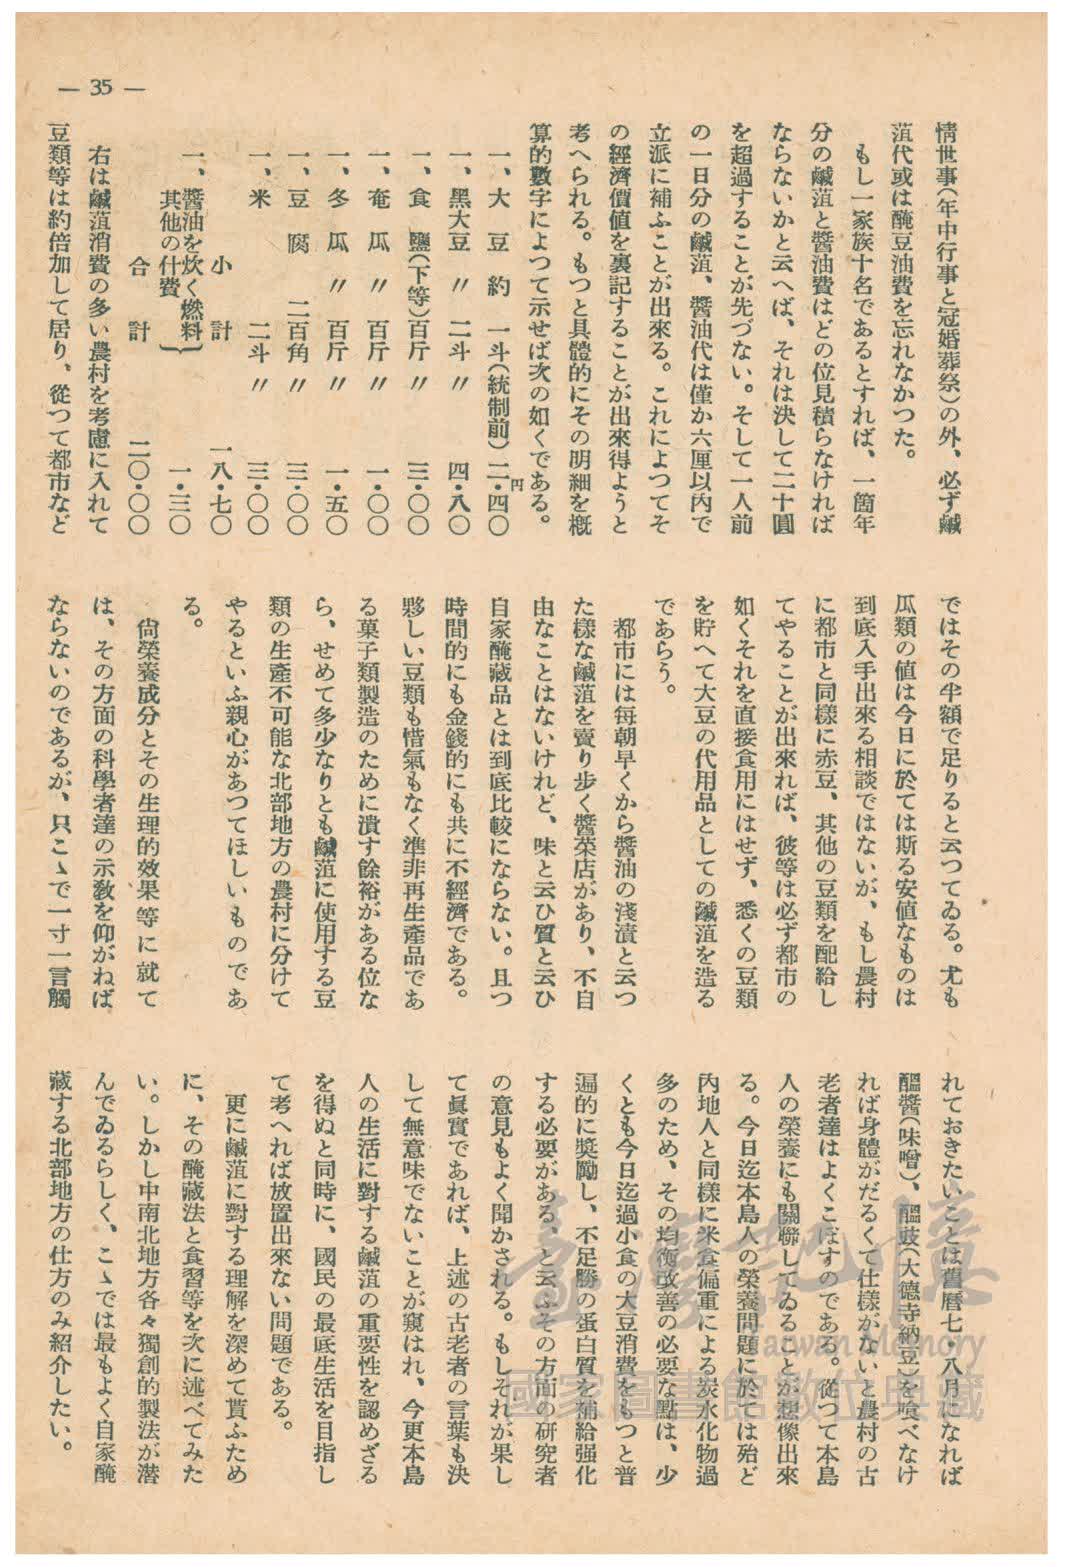 — 35 —
情世事(年中行事と冠婚葬祭)の外、必ず鹹
菹代或は醃豆油費を忘れなかつた。
もし一家族十名であるとすれば、一箇年
分の鹹菹と醬油費はどの位見積らなければ
ならないかと云へば、それは決して二十圓
を超過することが先づない。そして一人前
の一日分の鹹菹、醬油代は僅か六厘以內で
立派に補ふことが出來る。これによつてそ
の經濟價値を裏記することが出來得ようと
考へられる。もつと具體的にその明細を槪
算的數字によつて示せば次の如くである。
一、大豆 約 一斗(統制前) 二・四〇円
一、黑大豆 〃 二斗 〃 四・八〇
一、食鹽(下等)百斤 〃 三・〇〇
一、奄瓜 〃 百斤 〃 一・〇〇
一、冬瓜 〃 百斤 〃 一・五〇
一、豆腐 二百角 〃 三・〇〇
一、米 二斗 〃 三・〇〇
小計 一八・七〇
一、醬油を炊く燃料
其他の什費 一・三〇
合計 二〇・〇〇
右は鹹菹消費の多い農村を考慮に入れて
豆類等は約倍加して居り、從つて都市など
ではその半額で足りると云つてゐる。尤も
瓜類の値は今日に於ては斯る安値なものは
到底入手出來る相談ではないが、もし農村
に都市と同樣に赤豆、其他の豆類を配給し
てやることが出來れば、彼等は必ず都市の
如くそれを直接食用にはせず、悉くの豆類
を貯へて大豆の代用品としての鹹菹を造る
であらう。
都市には每朝早くから醬油の淺漬と云つ
た樣な鹹菹を賣り步く醬菜店があり、不自
由なことはないけれど、味と云ひ質と云ひ
自家醃藏品とは到底比較にならない。且つ
時間的にも金錢的にも共に不經濟である。
夥しい豆類も惜氣もなく準非再生產品であ
る菓子類製造のために潰す餘裕がある位な
ら、せめて多少なりとも鹹菹に使用する豆
類の生產不可能な北部地方の農村に分けて
やるといふ親心があつてほしいものであ
る。
尙榮養成分とその生理的效果等に就て
は、その方面の科學者達の示敎を仰がねば
ならないのであるが、只こゝで一寸一言觸
れておきたいことは舊曆七、八月になれば
醞醬(味噌)、醞豉(大德寺納豆)を喰べなけ
れば身體がだるくて仕樣がないと農村の古
老者達はよくこぼすのである。從つて本島
人の榮養にも關聯してゐることが想像出來
る。今日迄本島人の榮養問題に於ては殆ど
內地人と同樣に米食偏重による炭水化物過
多のため、その均衡改善の必要な點は、少
くとも今日迄過小食の大豆消費をもつと普
遍的に奬勵し、不足勝の蛋白質を補給强化
する必要がある、と云ふその方面の硏究者
の意見もよく聞かされる。もしそれが果し
て眞實であれば、上述の古老者の言葉も決
して無意味でないことが窺はれ、今更本島
人の生活に對する鹹菹の重要性を認めざる
を得ぬと同時に、國民の最底生活を目指し
て考へれば放置出來ない問題である。
更に鹹菹に對する理解を深めて貰ふため
に、その醃藏法と食習等を次に述べてみた
い。しかし中南北地方各々獨創的製法が潛
んでゐるらしく、こゝでは最もよく自家醃
藏する北部地方の仕方のみ紹介したい。
臺灣記憶
Taiwan Memory
國家圖書館數位典藏